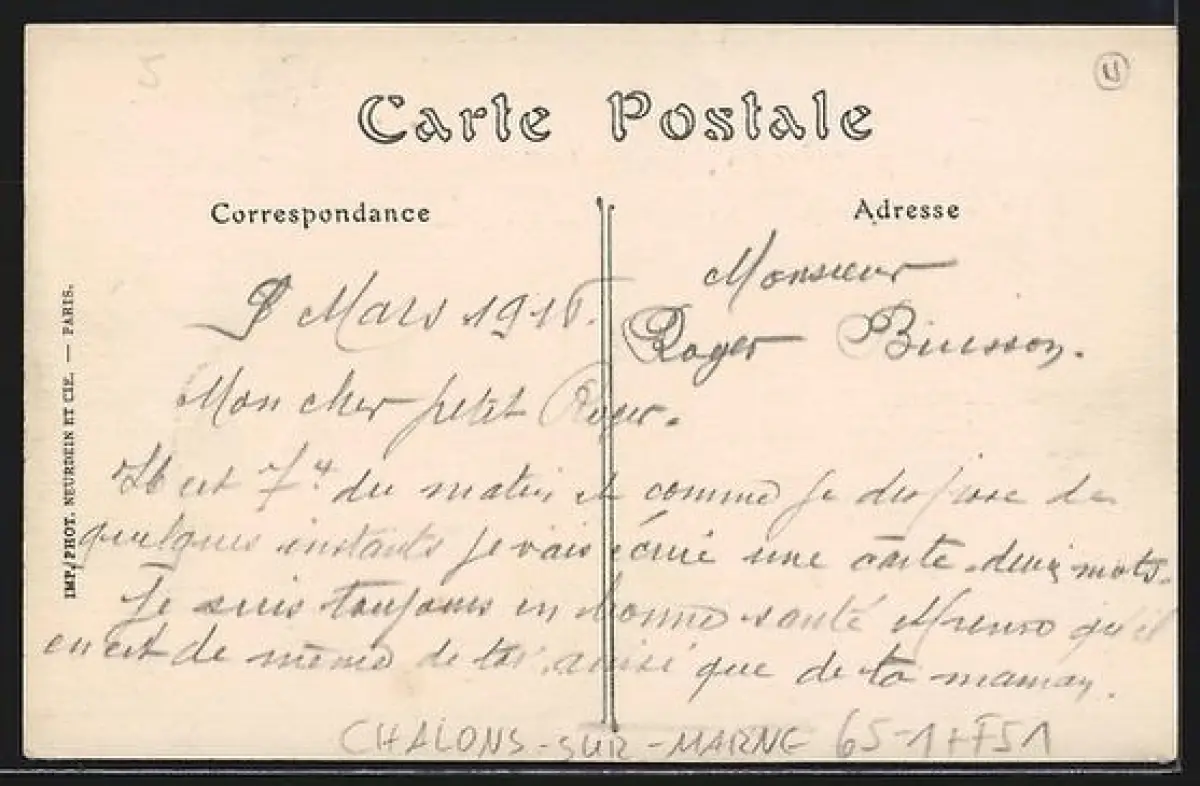 Carte Postale
Correspondance
Adresse
Monsieur
Roger Buisson.
8 Mars 1916.
Mon cher petit Roger.
Il est 7 h du matin et comme je dispose de
quelques instants je vais écrire une carte deux mots.
Je suis toujours en bonne santé qu'il
en est de même de toi ainsi que de ta maman.
CHALONS-SUR-MARNE 65-1+F51
IMP. PHOT. NEURDEIN ET CIE. — PARIS.